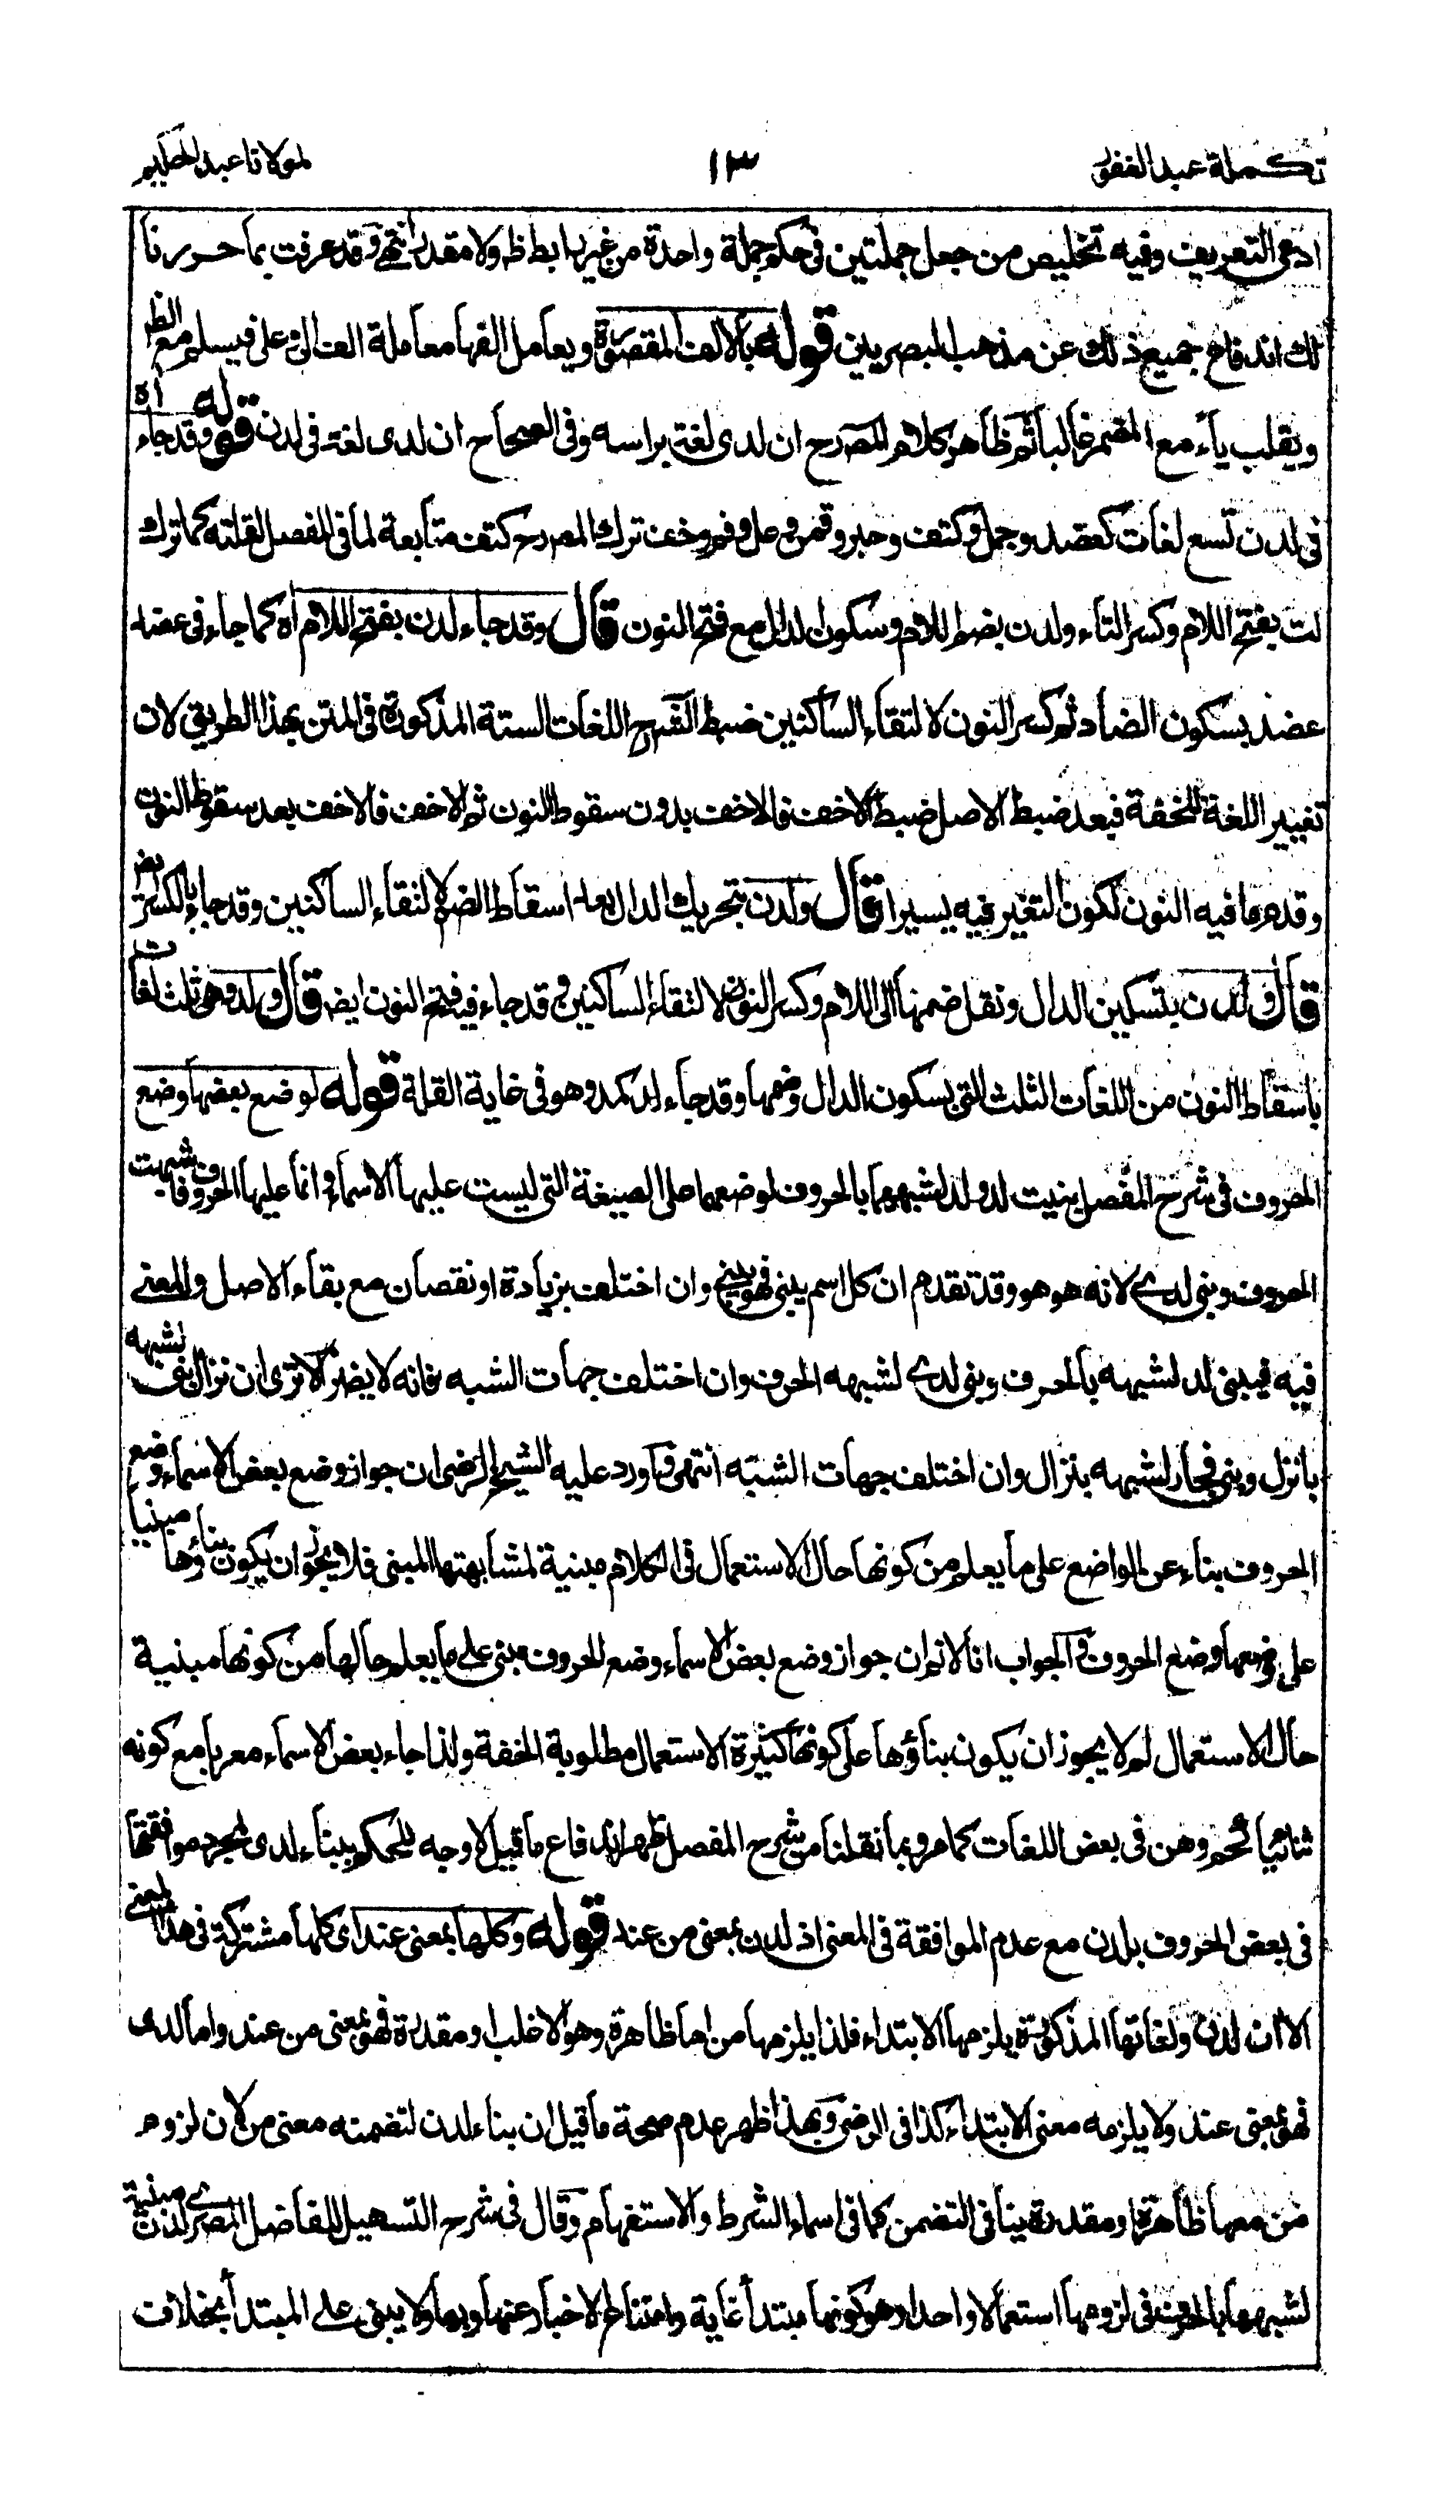 تكملة عبد الغفور ١٣ لمولانا عبد الحكيم
ادعى التعريف وفيه تخليص من جعل جملتين في حكم جملة واحدة من غير رابط ظ ولا مقدر انتهى وقد عرفت بما حررنا
لك اندفاع جميع ذلك عن مذهب البصريين قوله بالالف المقصورة ويعامل الفها معاملة الف الى وعلى فيسلم مع الظ
ويقلب ياء مع المضمر غالبا ثم ظاهر كلام المصرح ان لدى لغة براسه وفي الصحاح ان لدى لغة في لدن قوله وقد جاء اه
في لدن تسع لغات كعضد وجمل وكتف وحبر وقمر ترك المصرح كتف متابعة لما في المفصل لقلته كما ترك
لت بفتح اللام وكسر التاء ولدن بضم اللام وسكون الدال مع فتح النون قال وقد جاء لدن بفتح اللام اه كما جاء في عضد
عضد بسكون الضاد ثم كسر النون لالتقاء الساكنين ضبط الشرح اللغات الستة المذكورة في المتن بهذا الطريق لان
تغيير اللغة للخفة فبعد ضبط الاصل ضبط الاخف فالاخف بدون سقوط النون ثم الاخف فالاخف بعد سقوط النون
وقدم ما فيه النون لكون التغير فيه يسيرا قال ولدن بتحريك الدال بعد اسقاط الضم لالتقاء الساكنين وقد جاء بالكسر ايض
قال ولدن بتسكين الدال ونقل ضمتها الى اللام وكسر النون لالتقاء الساكنين وقد جاء فيه فتح النون ايض قال ولد وهي ثلث لغات
باسقاط النون من اللغات الثلث التي بسكون الدال وضمها وقد جاء لد كمد وهو في غاية القلة قوله لوضع بعضها وضع
الحروف في شرح المفصل بنيت لد ولد لشبههما بالحروف لوضعهما على الصيغة التي ليست عليها الاسماء وانما عليها الحروف فاشبهت
الحروف وبني لدى لانه هو هو وقد تقدم ان كل اسم بني فهو مبني وان اختلف بزيادة او نقصان مع بقاء الاصل والمعنى
فيه فيبنى لد لشبهه بالحرف وبنى لدى لشبهه الحرف وان اختلف جهات الشبه فانه لا يضر الا ترى ان نزال بني لشبهه
بانزل وبنى فجار لشبهه بنزال وان اختلف جهات الشبه انتهى واورد عليه الشيخ الرضى ان جواز وضع بعض الاسماء وضع
الحروف بناء عن الواضع على ما يعلم من كونها حال الاستعمال في الكلام مبنية لمشابهتها المبني فلا يجوز ان يكون بناؤها مبنيا
على وضعها وضع الحروف والجواب انا لانم ان جواز وضع بعض الاسماء وضع الحروف مبنى على ما يعلم حالها من كونها مبنية
حال الاستعمال لم لا يجوز ان يكون بناؤها على كونها كثيرة الاستعمال مطلوبة الخفة ولذا جاء بعض الاسماء معربا مع كونه
ثنائيا كحم وهن في بعض اللغات كما مر وبما نقلنا من شرح المفصل ظهر اندفاع ما قيل لا وجه للحكم ببناء لدى لمجرد موافقتها
في بعض الحروف بلدن مع عدم الموافقة في المعنى اذ لدن بمعنى من عند قوله وكلها بمعنى عند اى كلها مشتركة في هذا المعنى
الا ان لدن ولغاتها المذكورة يلزمها الابتداء فلذا يلزمها من اما ظاهرة وهو الاغلب او مقدرة فهو بمعنى من عند واما لدى
فهو بمعنى عند ولا يلزمه معنى الابتداء كذا في الرضى وبهذا ظهر عدم صحة ما قيل ان بناء لدن لتضمنه معنى من لان لزوم
من معها ظاهرة او مقدرة ينافى التضمن كما في اسماء الشرط والاستفهام وقال في شرح التسهيل للفاضل المصرى لدن مبنية
لشبهها بالحرف في لزومها استعمالا واحدا وهو كونها مبتدأ غاية وامتناع الاخبار عنها وبها ولا يبنى على المبتدأ بخلاف